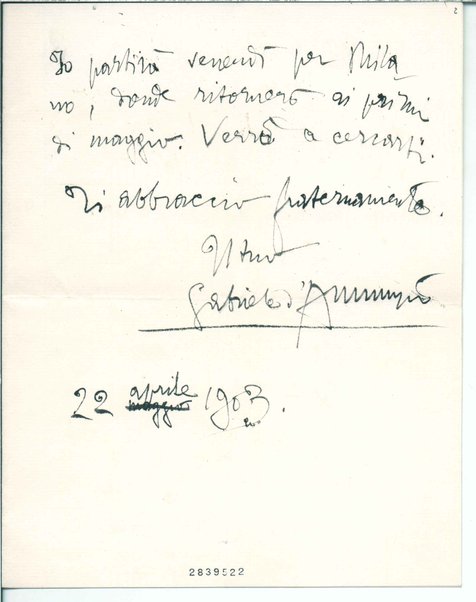 2
Io partirò venerdì per Mila
no, donde ritornerò ai primi
di maggio. Verrò a cercarti.
Ti abbraccio fraternamente.
Il tuo
Gabriele d'Annunzio
22 aprile maggio 1903.
2839522